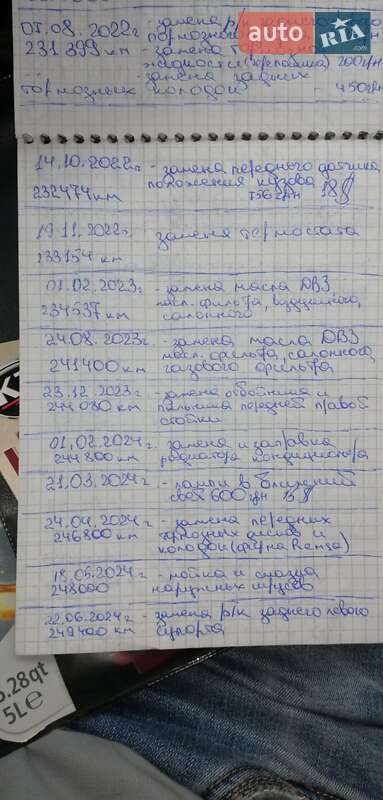 05.08.2022г - замена р/к заднего
231 399 км
тормозного
- замена тормозной
жидкости (переливка) 200грн
- замена задних
тормозных колодок - 450грн
auto RIA
14.10.2022г - замена переднего датчика
положения кузова
232474 км 756грн 18$
19.11.2022г - замена термостата
233154 км
01.02.2023г - замена масла ДВЗ,
234637 км масл. фильтра, воздушного,
салонного
24.08.2023г - замена масла ДВЗ
241400 км масл. фильтра, салонного,
газового фильтра
23.12.2023г - замена отбойника и
244080 км пыльника передней правой
стойки
01.02.2024г - замена и заправка
244800 км радиатора кондиционера
21.03.2024г - лампы в ближний
свет 600грн 15$
24.04.2024г - замена передних
246800 км тормозных дисков и
колодок (фирма Remsa)
18.06.2024г - мойка и смазка
248000 наружных шрусов
22.06.2024г - замена р/к заднего левого
249400 км суппорта
5.28qt
5L℮